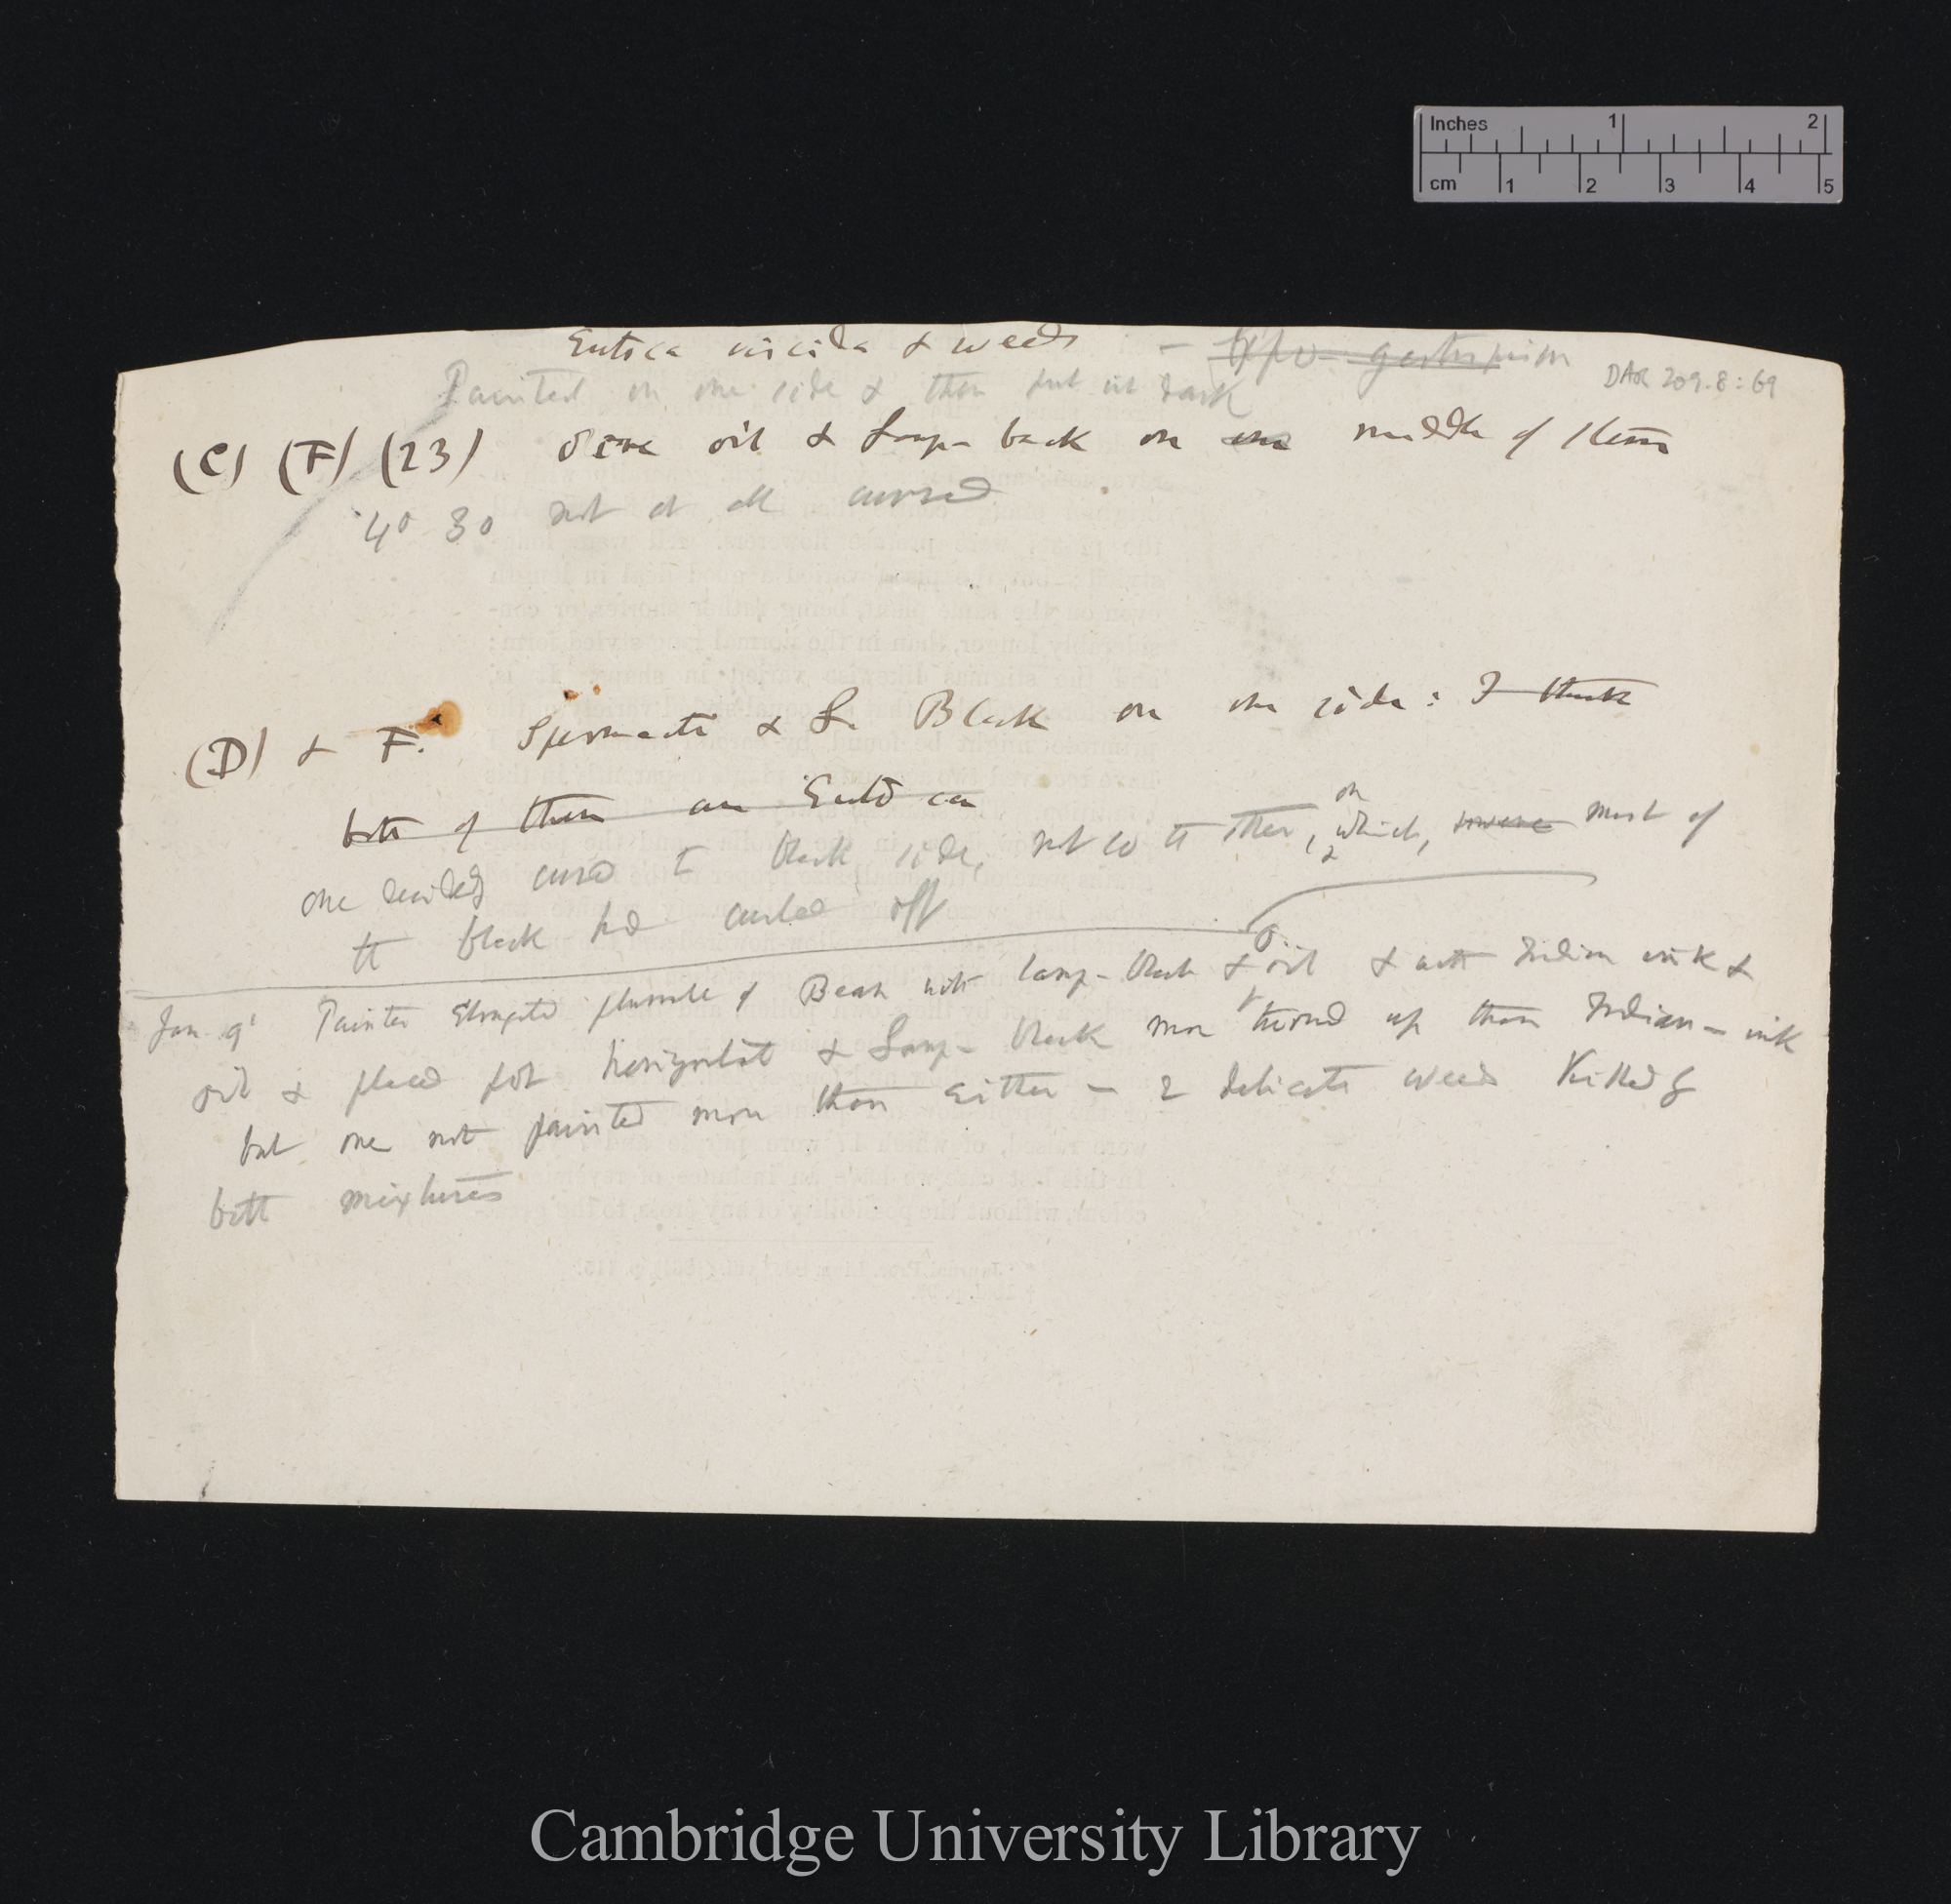 Inches 1 2
cm 1 2 3 4 5
& weeds –
Painted on one side & then put in dark
DAR 209.8:69
(C) (F) (23) oil & Lamp-back on one middle of stem
4° 30 not at all curved
(D) & F. Spermaceti & L. Black on one side: I think
both of them are
one decidedly curved to black side, not so tt other, on which, most of
tt black had curled off
Jan 9' Painted Elongated plumule of Bean with lamp-black & oil & with Indian ink &
oil & placed pot horizontal & Lamp-black more turned up than Indian-ink
but one not painted more than either – 2 delicate weeds killed by
both mixtures
Cambridge University Library